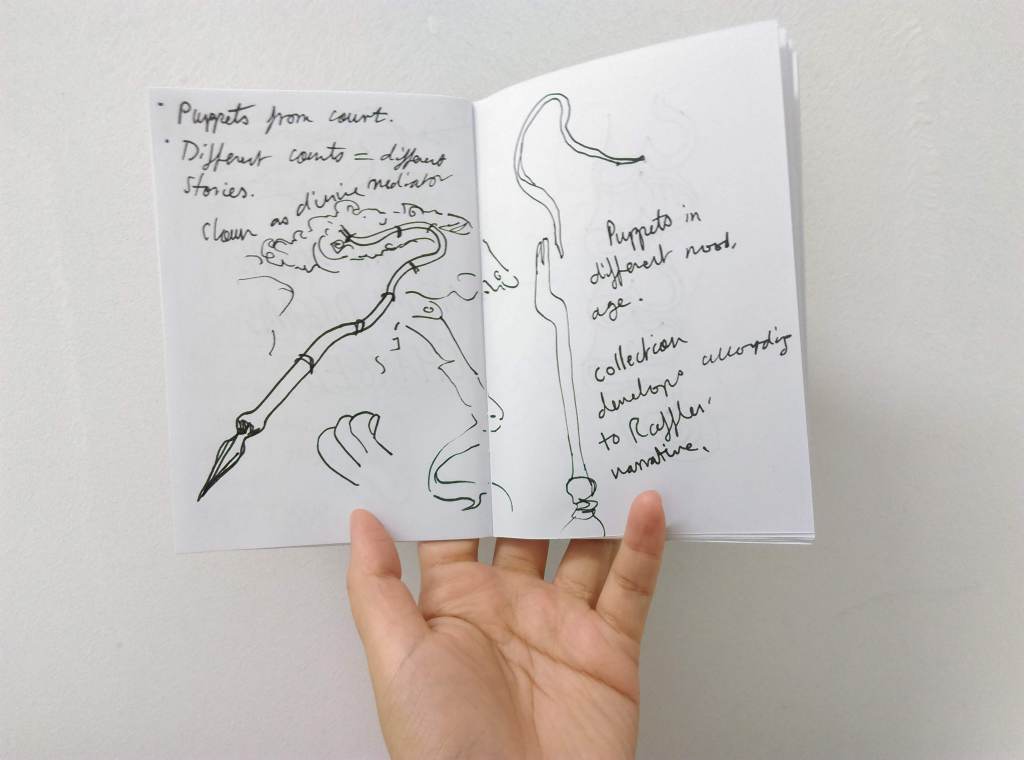 • Puppets from court.
• Different courts = different
stories.
Clown as divine mediator
Puppets in
different mood,
age.
collection
develops according
to Raffles'
narrative.